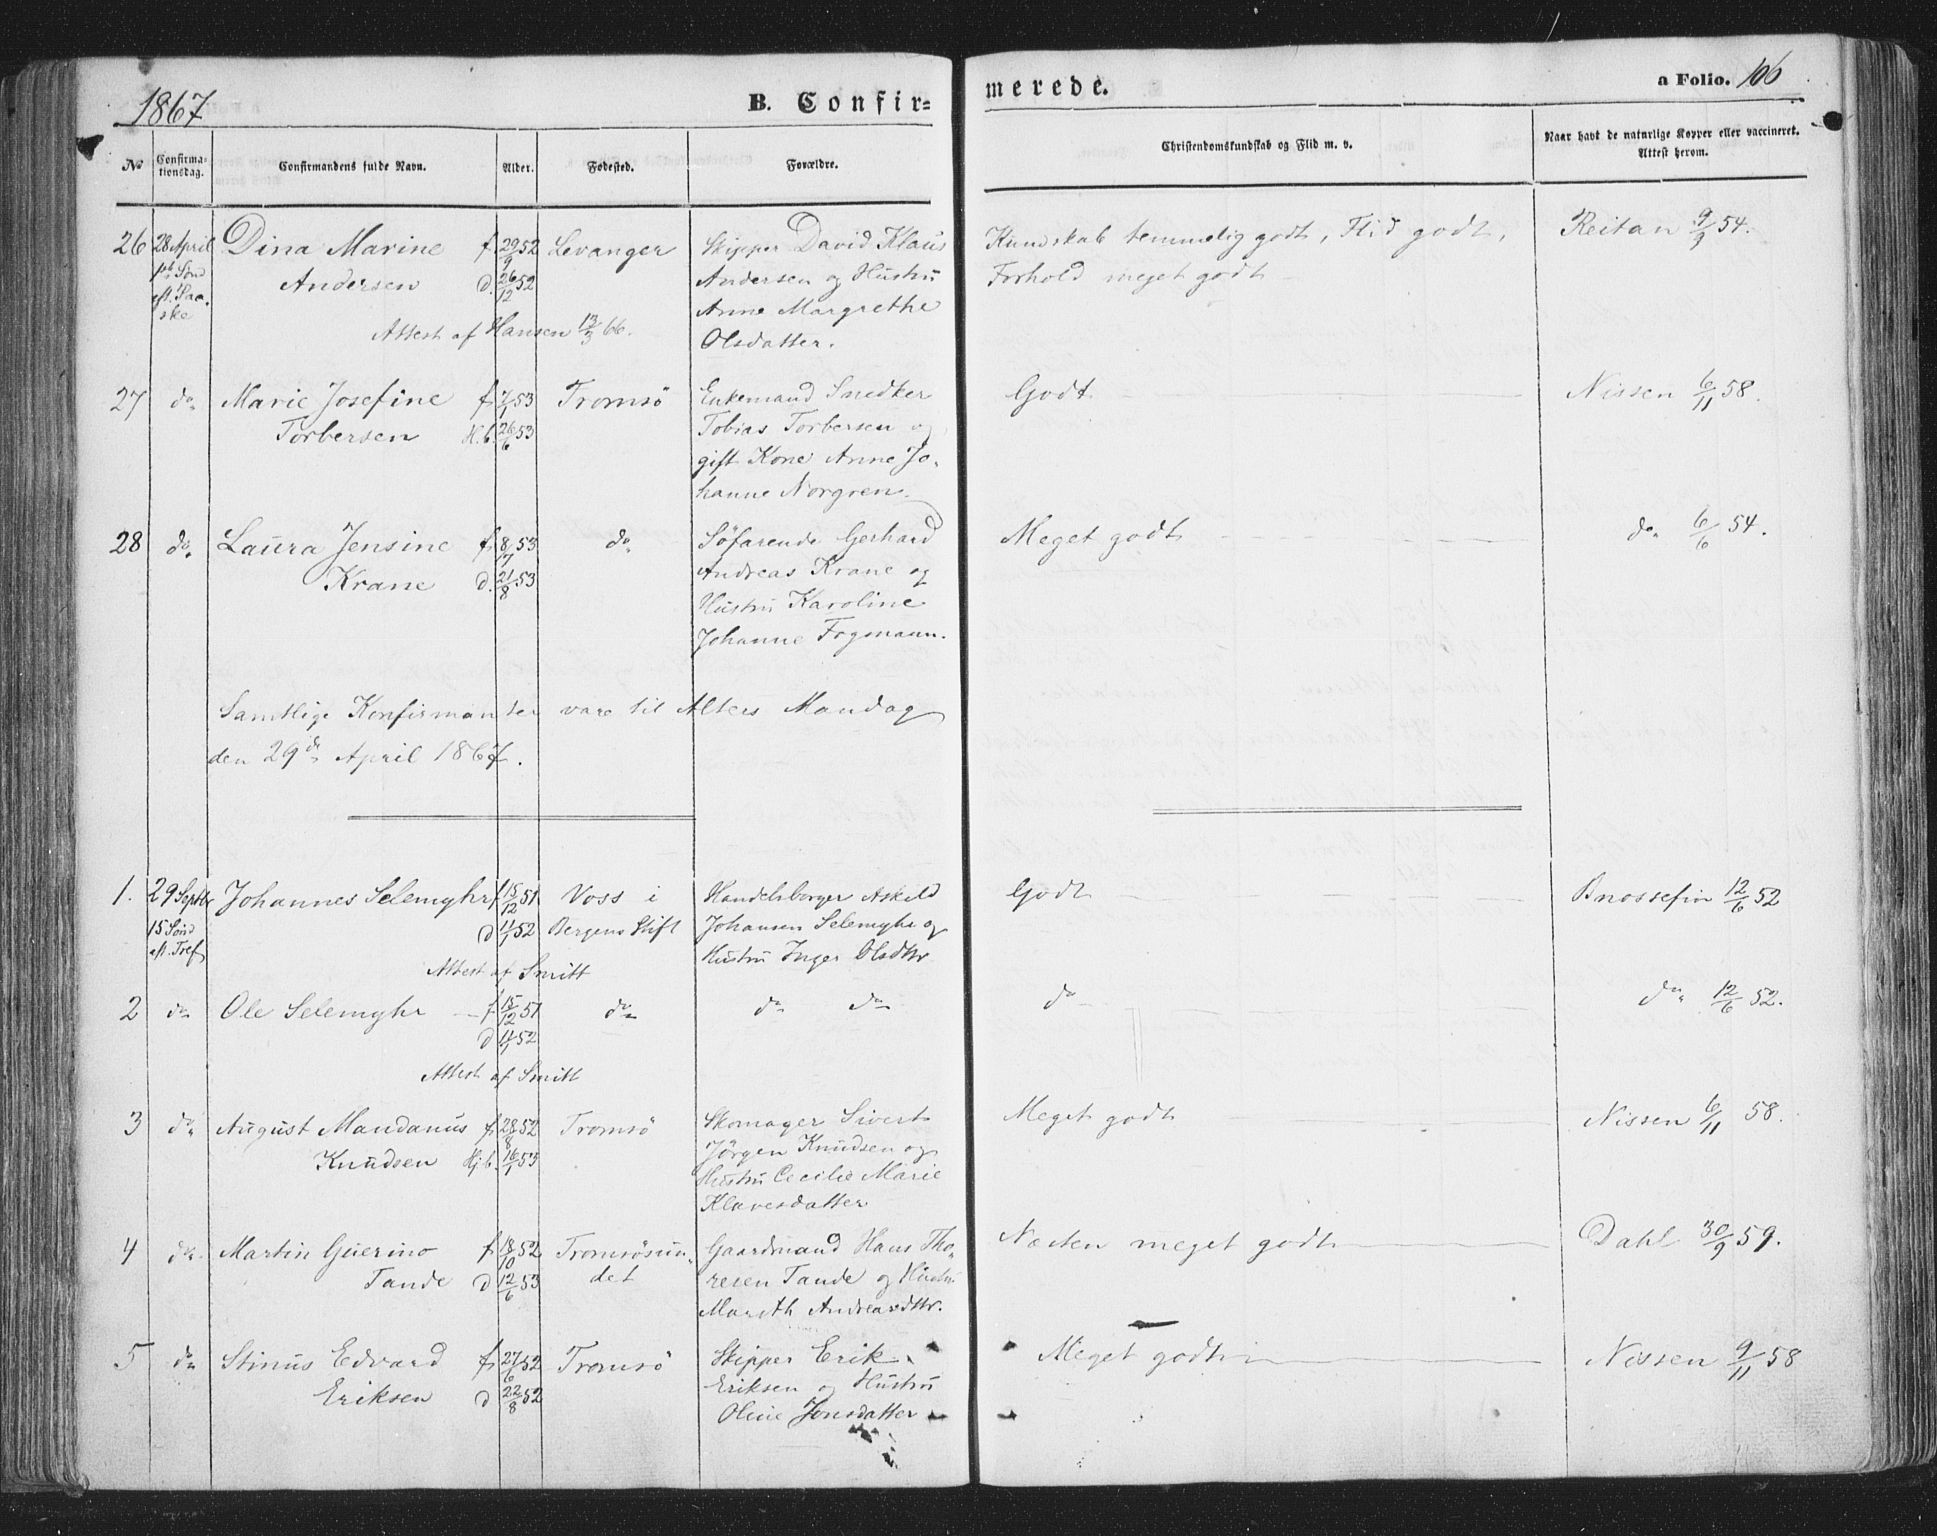 1867
B. Confirmerede.
a Folio. 106
No
Confirmationsdag.
Confirmandens fulde Navn.
Alder.
Fødested.
Forældre.
Christendomskundskab og Flid m. v.
Naar havt de naturlige Kopper eller vaccineret. Attest herom.
26 28 April Dina Marine f 29/9 52 Levanger Skipper David Klaus Kundskab temmelig godt, Flid godt, Reitan 9/9 54.
1ste Sønd Andersen d. 26/12 52 Andersen og Hustru Forhold meget godt
eft. Paa-
ske Anne Margrethe
Attest af Hansen 13/3 66. Olsdatter.
27 do Marie Josefine f 7/1 53 Tromsö Enkemand Snedker Godt. Nissen 6/11 58.
Torbersen H.b. 26/6 53 Tobias Torbersen og
gift Kone Anne Jo-
hanne Norgren.
28 do Laura Jensine f 8/7 53 do Söfarende Gerhard Meget godt do 6/6 54.
Krane d. 21/8 53 Andreas Krane og
Hustru Karoline
Johanne Fogmann.
Samtlige Konfirmanter vare til Alters Mandag
den 29de April 1867.
1. 29 Septbr Johannes Selemyhr f 15/12 51 Voss i Handelsborger Askild Godt 12/6 52
15 Sønd d 11/1 52 Bergens Stift Johansen Selemyhr og
eft. Tref Hustru Inger Olsdtr
Attest af Smitt
2 do Ole Selemyhr f 15/12 51 do do do do do 12/6 52.
d 11/1 52
Attest af Smitt
3 do August Mandanus f 28/8 52 Tromsö Skomager Sivert Meget godt Nissen 6/11 58.
Knudsen Hj.b. 16/1 53 Jörgen Knudsen og
Hustru Cecilie Marie
Klavesdatter
4 do Martin Guerino f 18/10 52 Tromsösun- Gaardmand Hans Tho- Næsten meget godt Dahl 30/9 59.
Tande d 12/6 53 det resen Tande og Hustru
Mareth Andreasdtr.
5 do Stinus Edvard f 27/6 52 Tromsö Skipper Erik Meget godt Nissen 9/11 58
Eriksen d 22/8 52 Eriksen og Hustru
Oline Jonsdatter